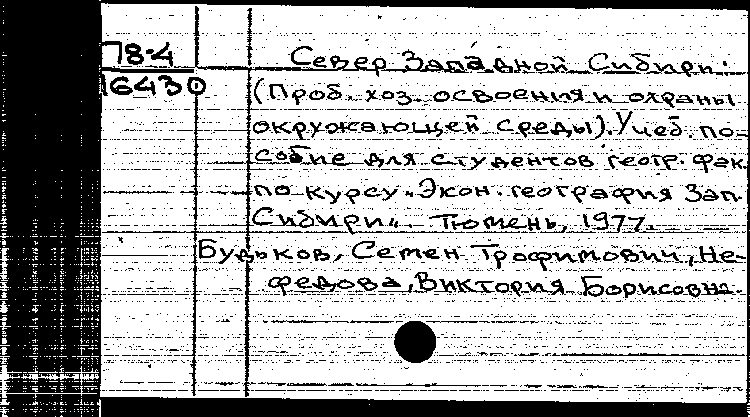 П78-4
16430
Север Западной Сибири:
(Проб. хоз. освоения и охраны
окружающей среды). Учеб. по-
собие для студентов геогр. фак.
по курсу „Экон. география Зап.
Сибири". Тюмень, 1977.
Будьков, Семен Трофимович, Не-
федова, Виктория Борисовна.